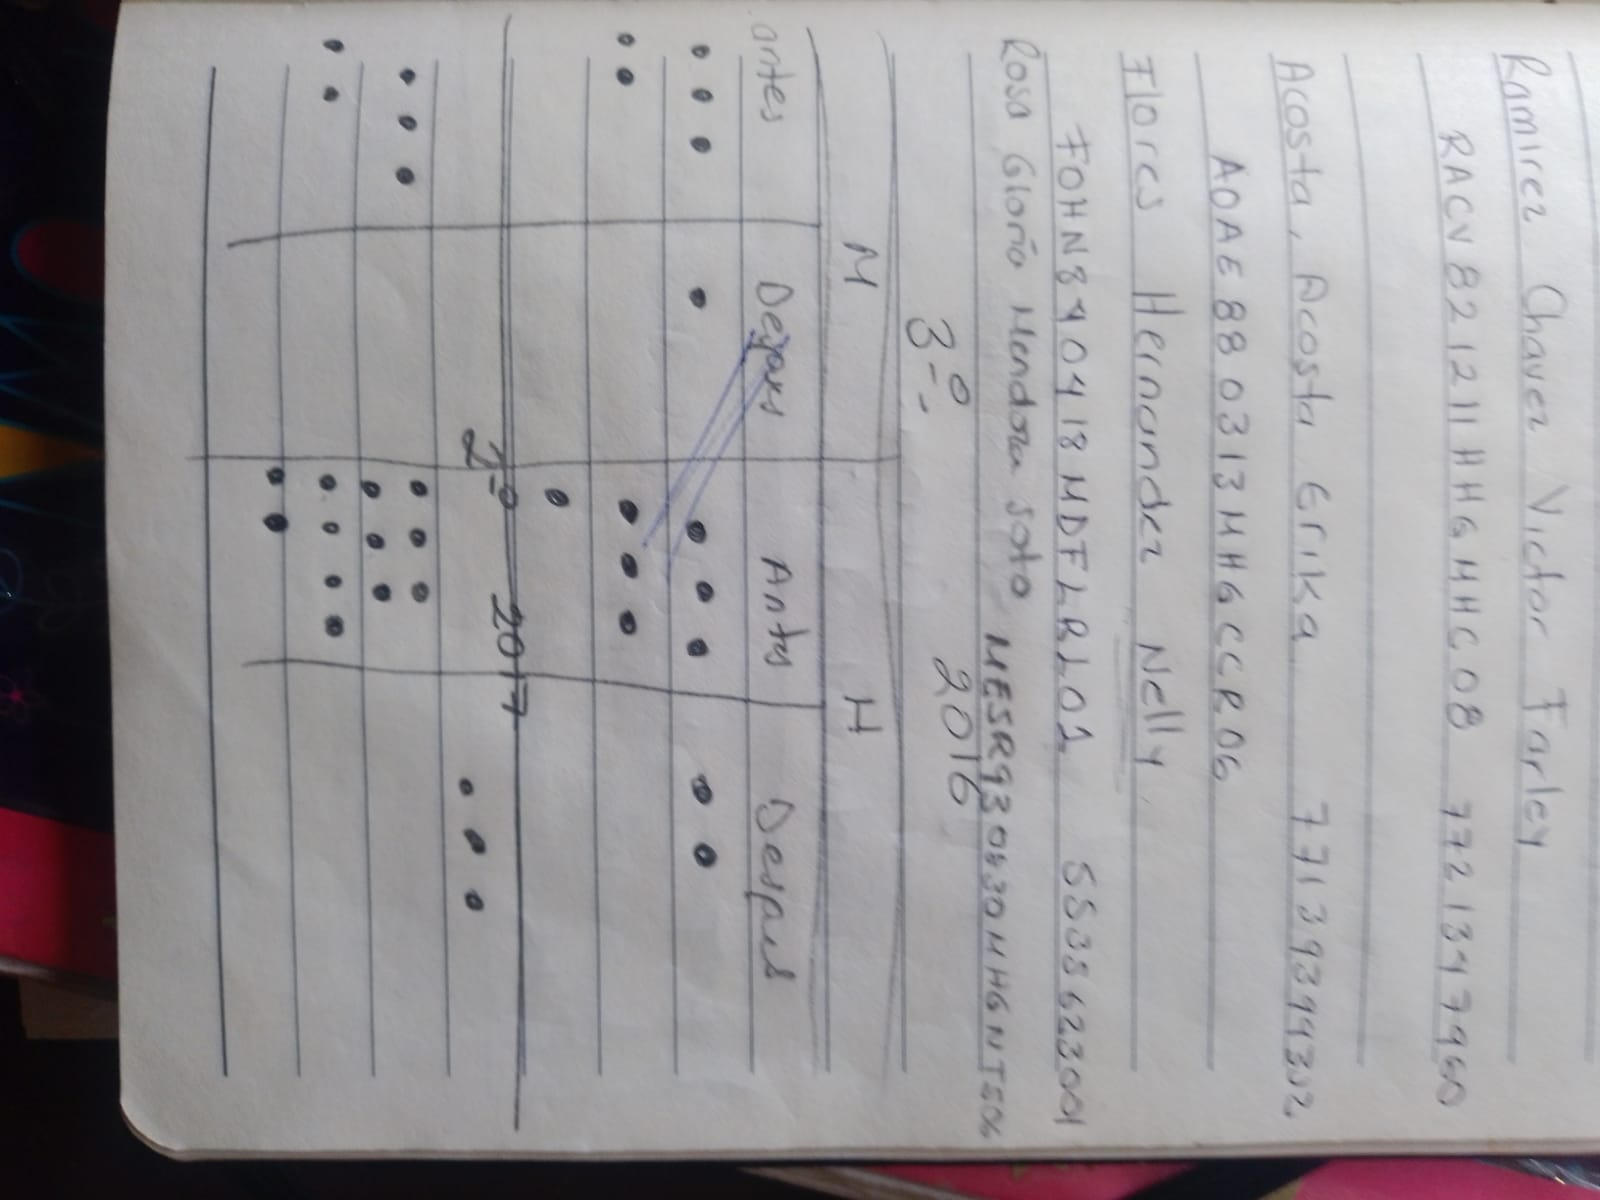 Ramirez Chavez Victor Farley
RACV821211HHGMHC08 7721347960
Acosta, Acosta Erika 7713939302
AOAE880313MHGCCR06
Flores Hernandez Nelly
FOHN840418MDFLRL01 5535623001
Rosa Gloria Mendoza Soto MESR930830MHGNTS06
3º. 2016
M H
antes Despues Antes Despues
2º 2017